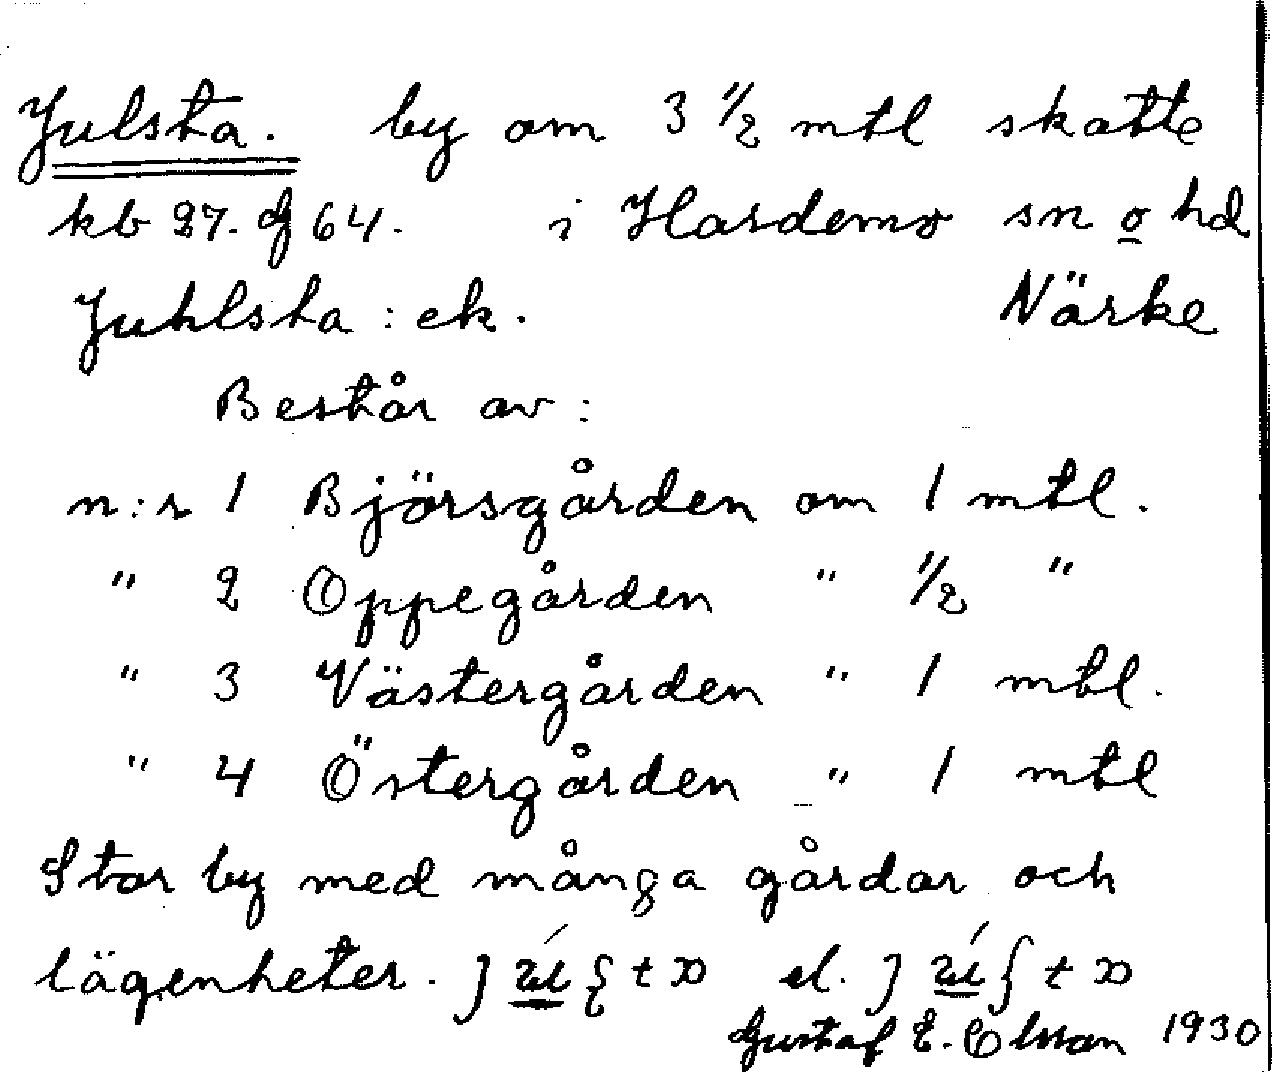 Julsta. by om 3 1/2 mtl skatte
kb 27. g 64. i Hardemo sn o hd
Juhlsta : ek. Närke
Består av :
n:r 1 Björsgården om 1 mtl.
" 2 Oppegården " 1/2 "
" 3 Västergården " 1 mtl.
" 4 Östergården " 1 mtl
Stor by med många gårdar och
lägenheter. el.
Gustaf E. Olsson 1930